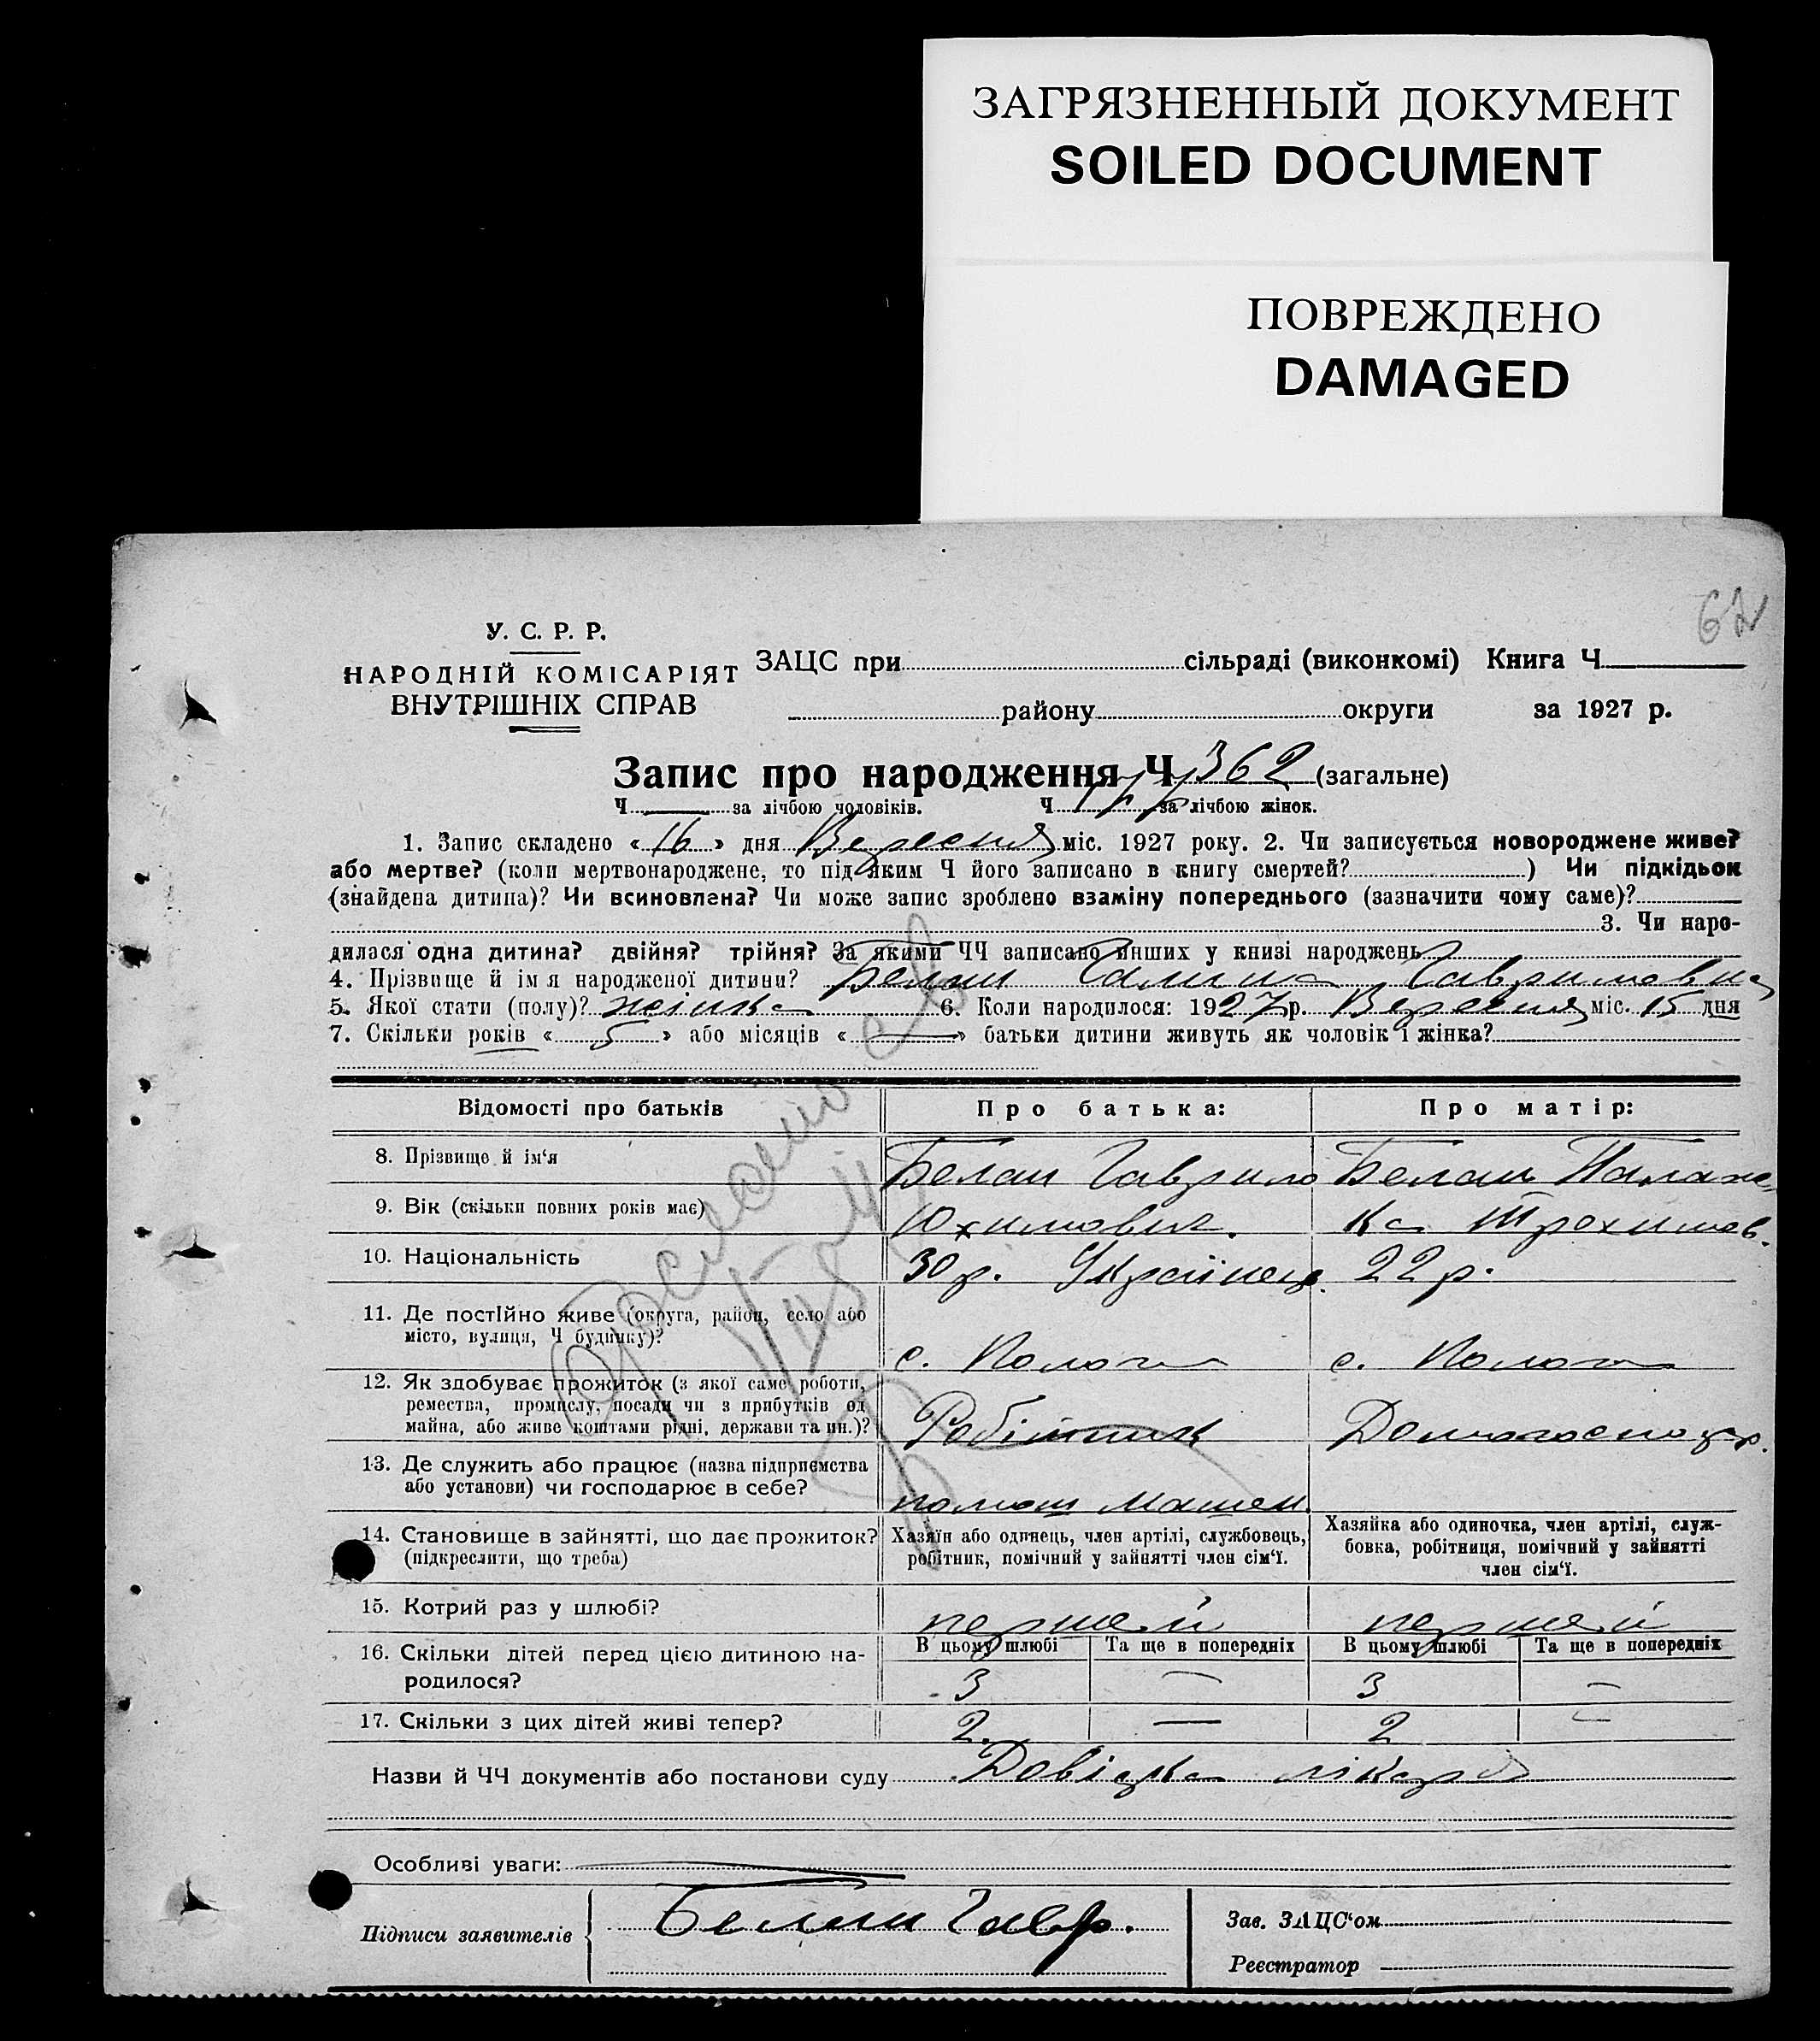 ЗАГРЯЗНЕННЫЙ ДОКУМЕНТ
SOILED DOCUMENT
ПОВРЕЖДЕНО
DAMAGED
У. С. Р. Р.
НАРОДНІЙ КОМІСАРІЯТ
ВНУТРІШНІХ СПРАВ
ЗАЦС при сільраді (виконкомі) Книга Ч
району округи за 1927 р.
Запис про народження Ч 362 (загальне)
Ч за лічбою чоловіків. Ч за лічбою жінок.
1. Запис складено « 16 » дня Вересня міс. 1927 року. 2. Чи записується новороджене живе?
або мертве? (коли мертвонароджене, то під яким Ч його записано в книгу смертей? ) Чи підкідьок
(знайдена дитина)? Чи всиновлена? Чи може запис зроблено взаміну попереднього (зазначити чому саме)?
3. Чи наро-
дилася одна дитина? двійня? трійня? За якими ЧЧ записано инших у книзі народжень
4. Прізвище й ім я народженої дитини? Белаш Галина Гавриловна
5. Якої стати (полу)? жінка 6. Коли народилося: 1927 р. Вересня міс. 15 дня
7. Скільки років « 5 » або місяців « — » батьки дитини живуть як чоловік і жінка?
Відомості про батьків Про батька: Про матір:
8. Прізвище й ім‘я Белаш Гаврило Белаш Палаж-
9. Вік (скільки повних років має) Юхимович. ка Трохимов.
10. Національність 30 р. Українец. 22 р.
11. Де постійно живе (округа, район, село або
місто, вулиця, Ч будинку)? с. Пологи с. Пологи
12. Як здобуває прожиток (з якої саме роботи,
ремества, промислу, посади чи з прибутків од
майна, або живе коштами рідні, держави та ин.)? Робітник
13. Де служить або працює (назва підприємства
або установи) чи господарює в себе?
14. Становище в зайнятті, що дає прожиток?
(підкреслити, що треба)
Хазяїн або одинець, член артілі, службовець,
робітник, помічний у зайнятті член сім‘ї.
Хазяйка або одиночка, член артілі, служ-
бовка, робітниця, помічний у зайнятті
член сім‘ї.
15. Котрий раз у шлюбі? першей першей
16. Скільки дітей перед цією дитиною на-
родилося?
В цьому шлюбі Та ще в попередніх В цьому шлюбі Та ще в попередніх
3 — 3 —
17. Скільки з цих дітей живі тепер? 2. — 2 —
Назви й ЧЧ документів або постанови суду Довідка лікаря
Особливі уваги:
Підписи заявителів Белаш Гавр.
Зав. ЗАЦС‘ом
Реєстратор